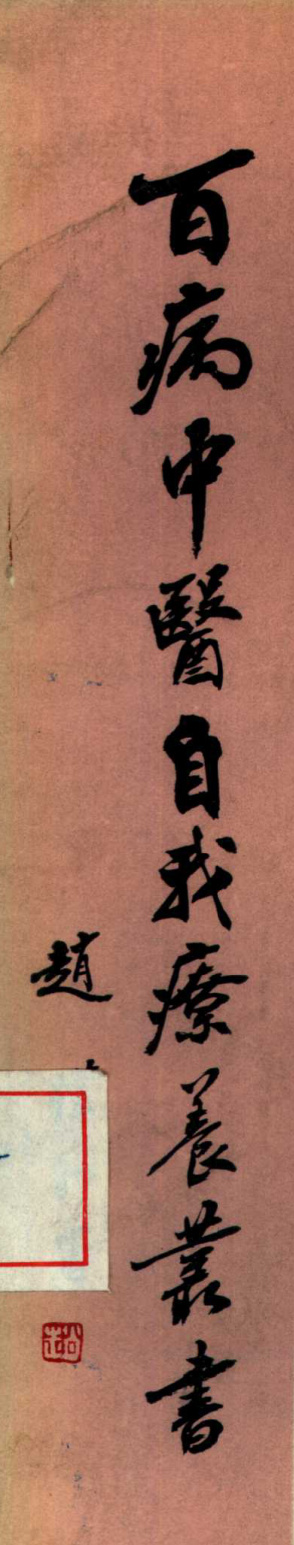 百病中醫自我療養叢書
趙